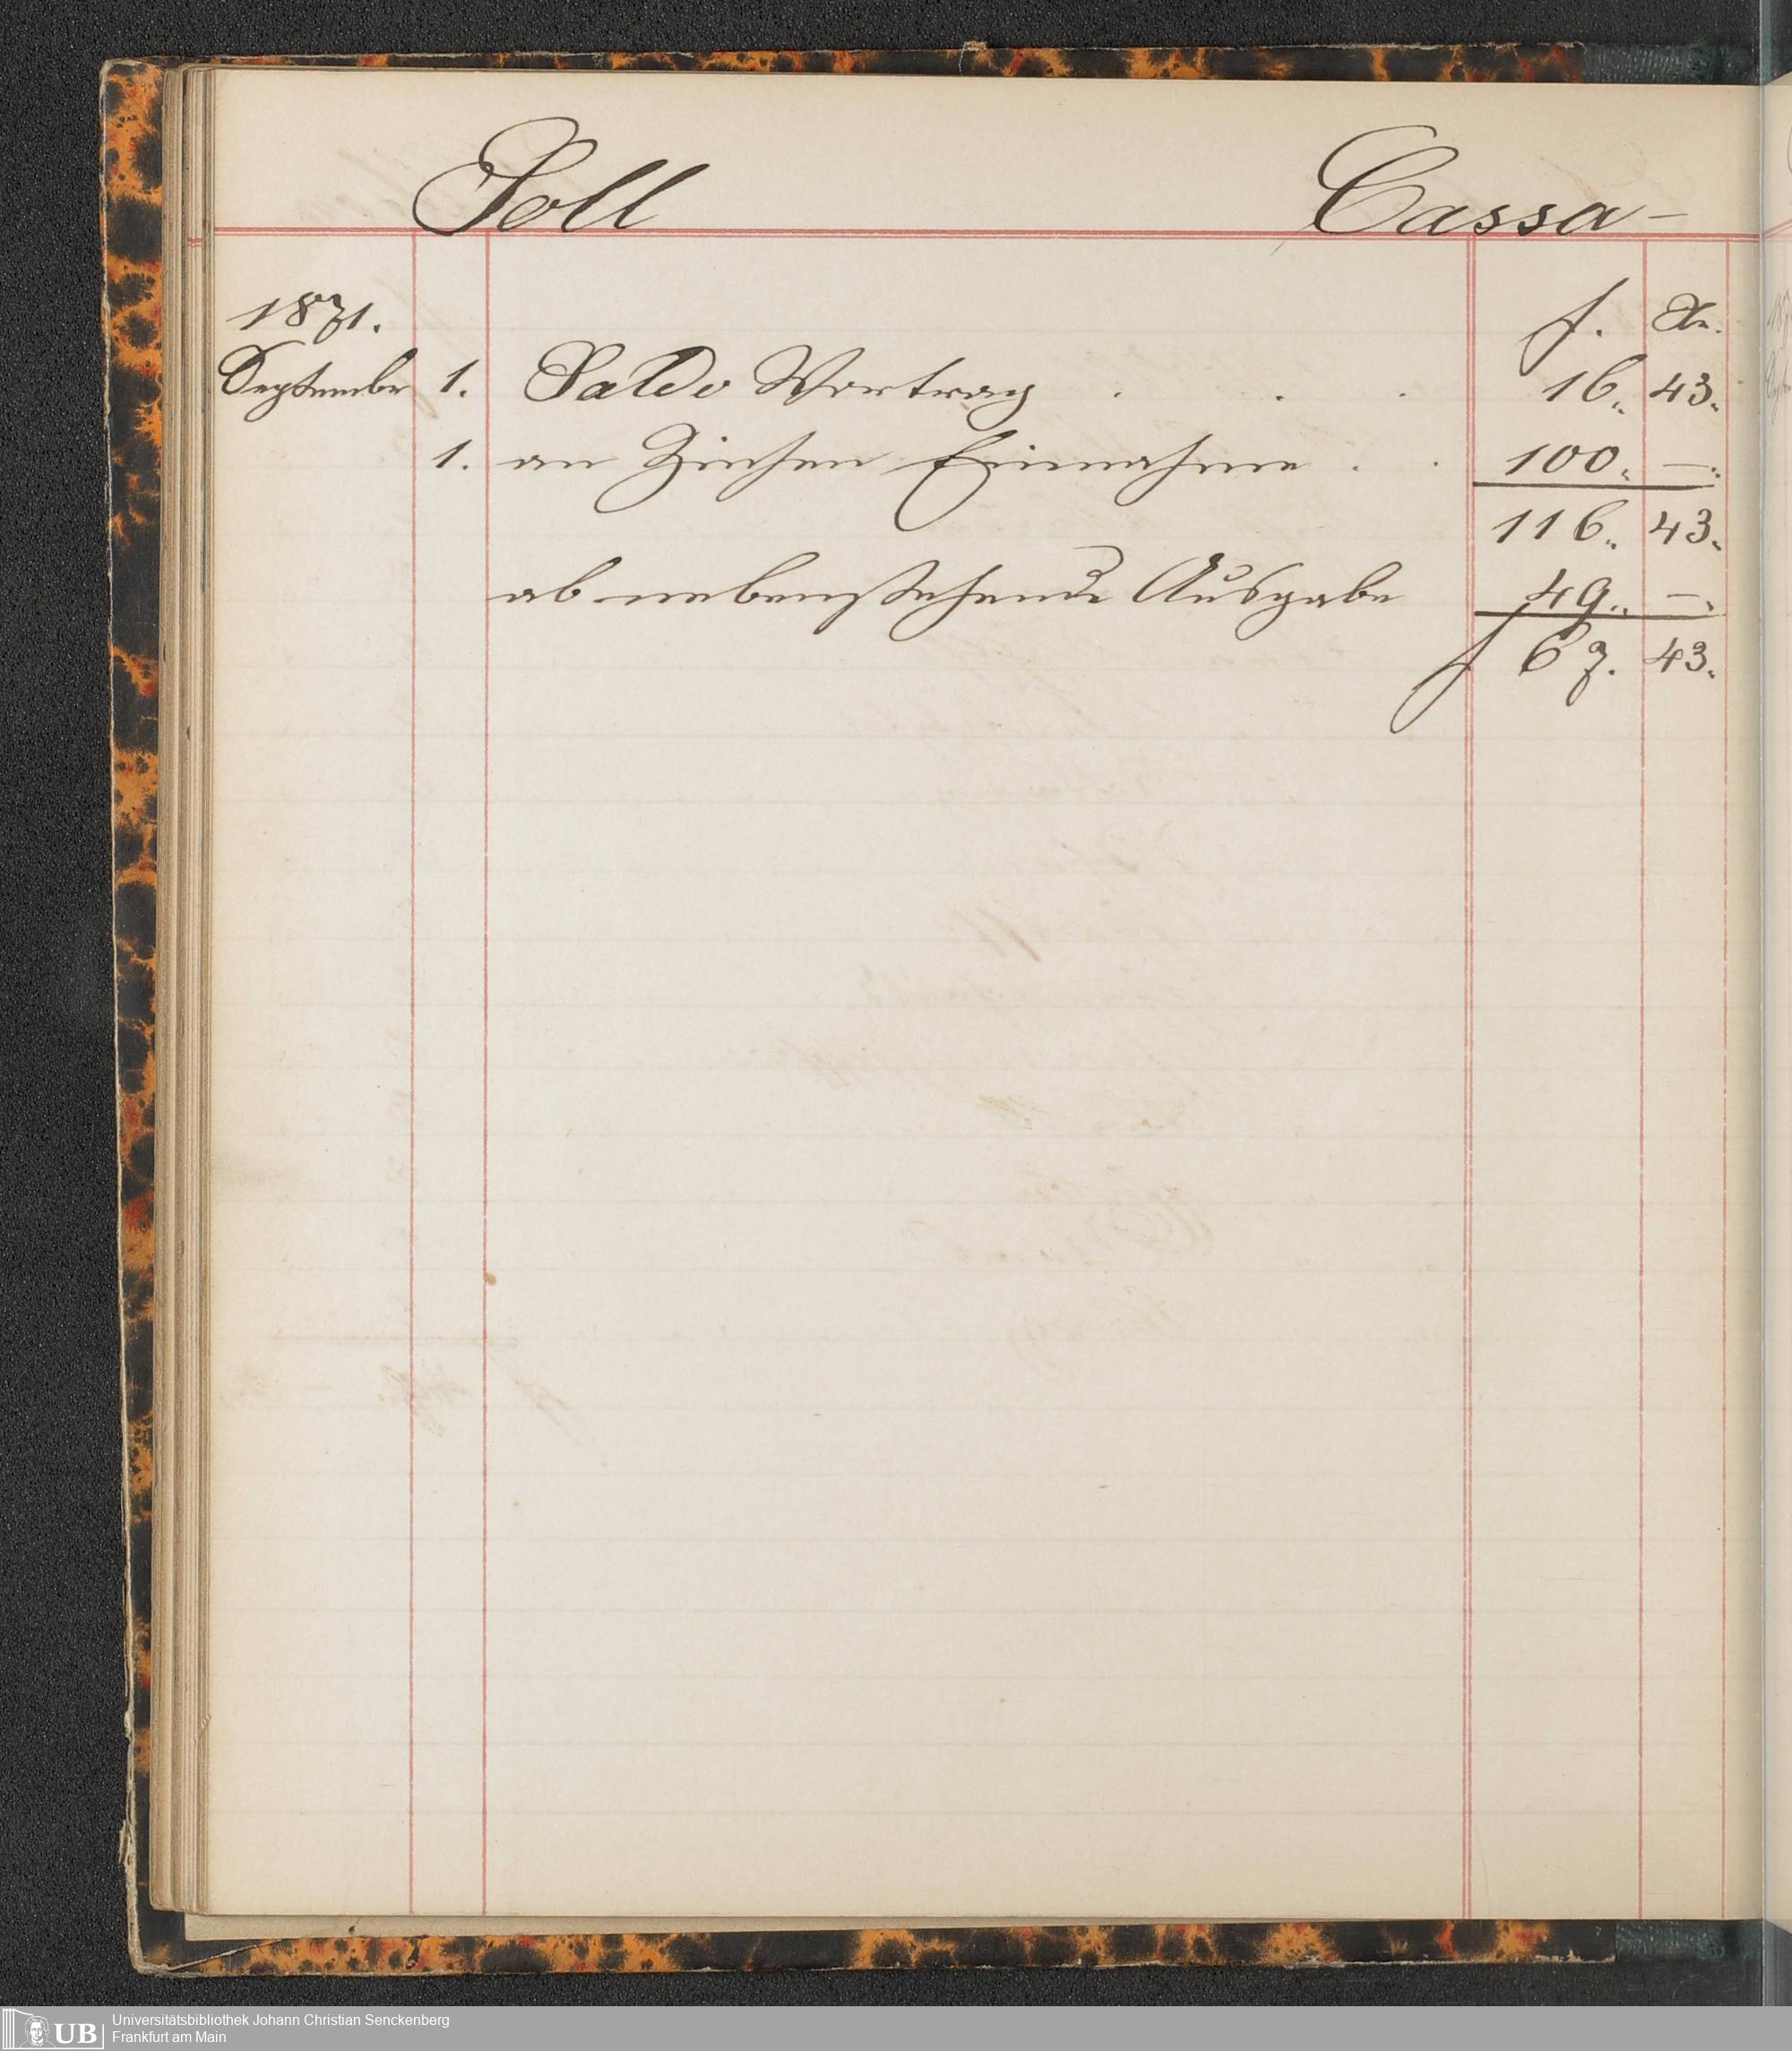 Soll Cassa-
1871. f. Xr.
September 1. Saldo Vortrag . . . 16.. 43..
1. an Zinsen Einnahme . . 100.. —..
116.. 43..
ab nebenstehende Ausgabe 49.. —..
f 67. 43..
UB
Universitätsbibliothek Johann Christian Senckenberg
Frankfurt am Main